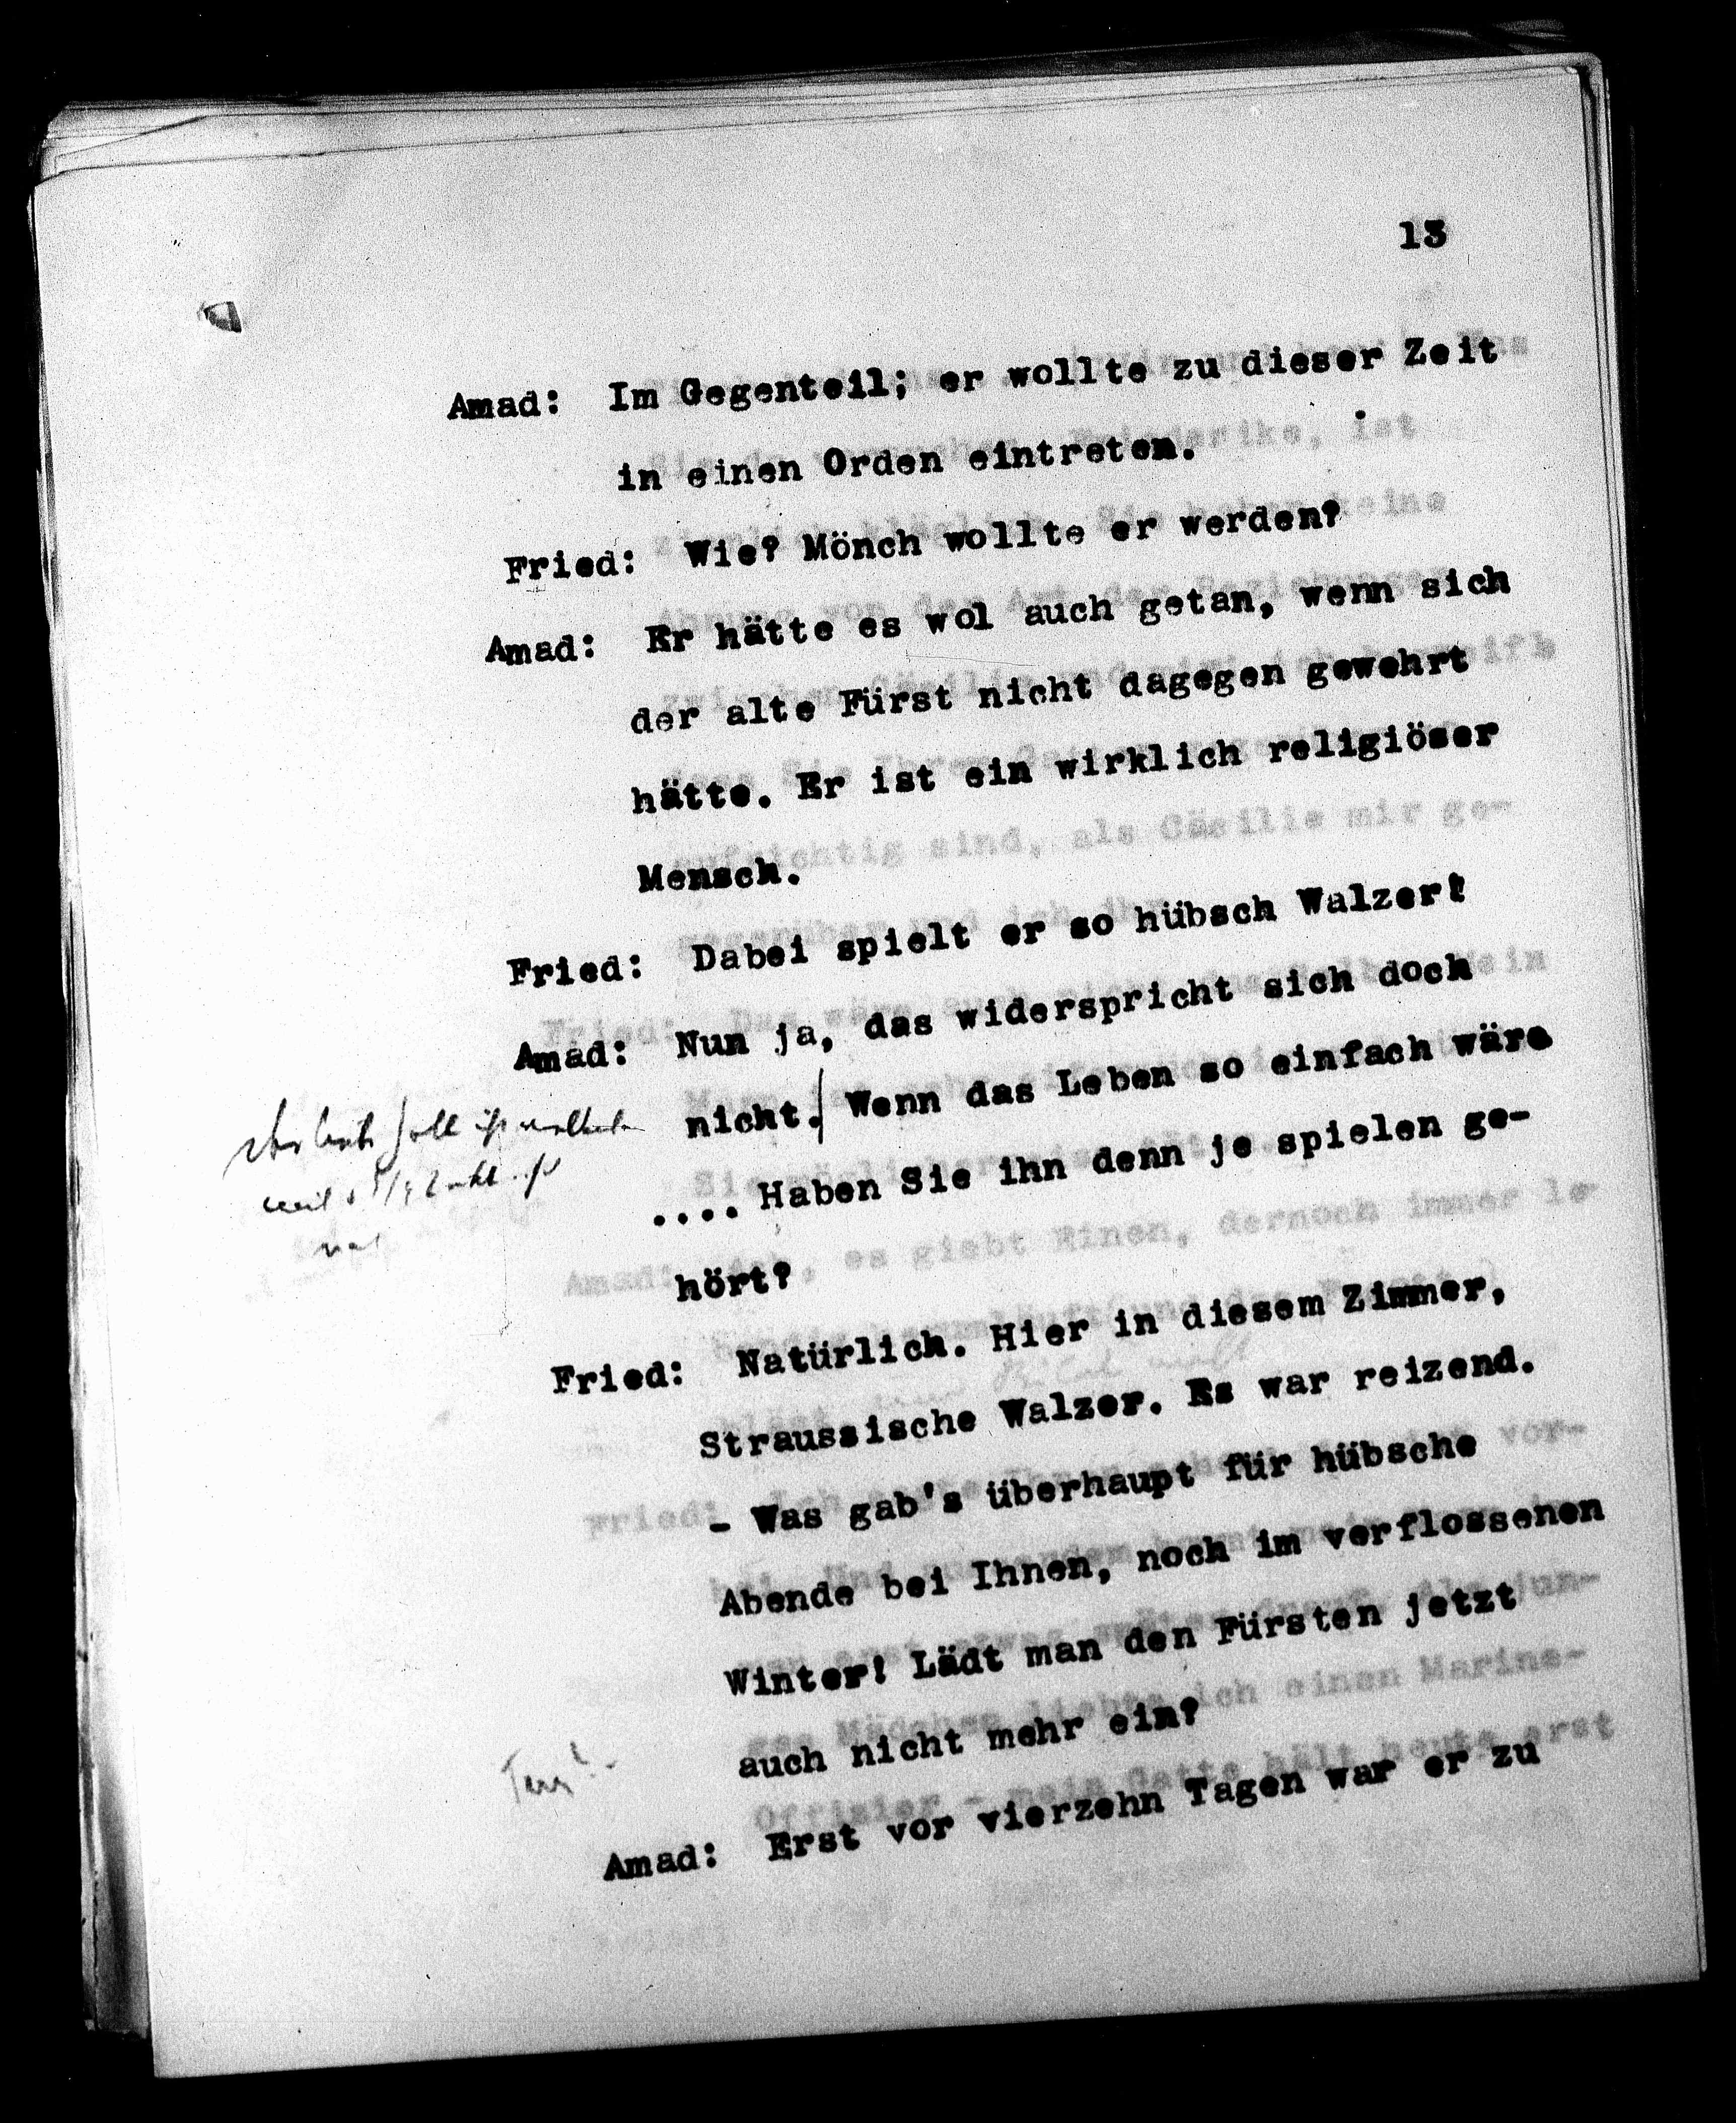 13
Amad: Im Gegenteil; er wollte zu dieser Zeit
in einen Orden eintreten.
Fried: Wie? Mönch wollte er werden?
Amad: Er hätte es wol auch getan, wenn sich
der alte Fürst nicht dagegen gewehrt
hätte. Er ist ein wirklich religiöser
Mensch.
Fried: Dabei spielt er so hübsch Walzer!
Amad: Nun ja, das widerspricht sich doch
nicht. Wenn das Leben so einfach wäre
.... Haben Sie ihn denn je spielen ge-
hört?
Fried: Natürlich. Hier in diesem Zimmer,
Straussische Walzer. Es war reizend.
- Was gab's überhaupt für hübsche
Abende bei Ihnen, noch im verflossenen
Winter! Lädt man den Fürsten jetzt
auch nicht mehr ein?
Amad: Erst vor vierzehn Tagen war er zu